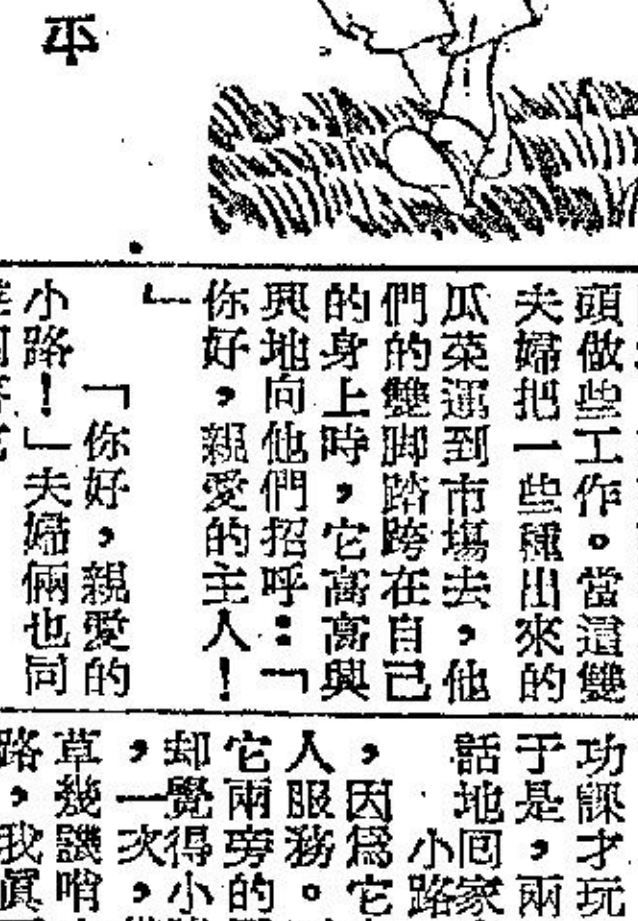 平
頭做些工作。當這雙
夫婦把一些種出來的
瓜菜運到市場去，他
們的雙脚踏跨在自己
的身上時，它高高興
興地向他們招呼：「
你好，親愛的主人！
」
「你好，親愛的
小路！」夫婦倆也同
功課才玩
于是，兩
話地回家
小路
，因爲它
人服務。
它兩旁的
却覺得小
，一次，
草幾譏哨
路，我眞